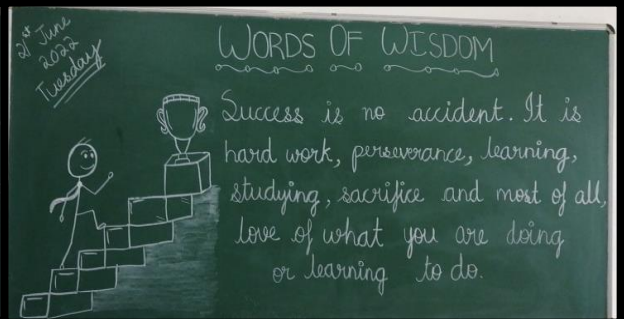 21st June
2022
Tuesday
WORDS OF WISDOM
Success is no accident. It is
hard work, perseverance, learning,
studying, sacrifice and most of all,
love of what you are doing
or learning to do.